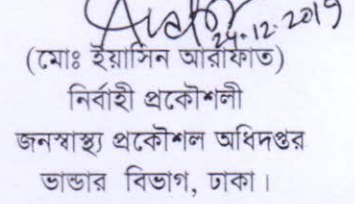 24.12.2019
(মোঃ ইয়াসিন আরাফাত)
নির্বাহী প্রকৌশলী
জনস্বাস্থ্য প্রকৌশল অধিদপ্তর
ভান্ডার বিভাগ, ঢাকা।